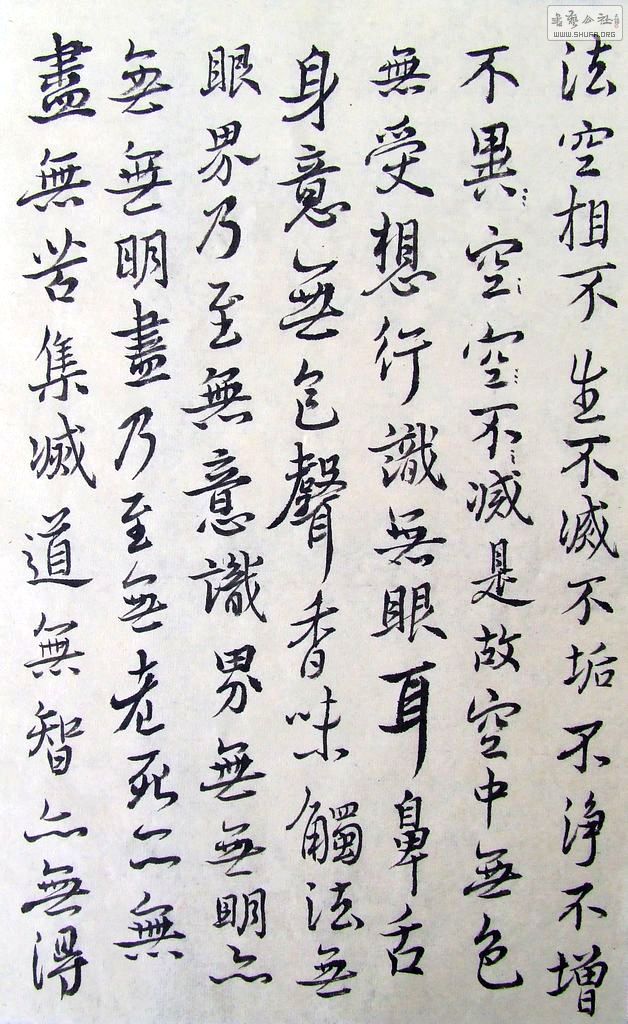 法空相不生不滅不垢不淨不增
不異空空不減是故空中無色
無受想行識無眼耳鼻舌
身意無色聲香味觸法無
眼界乃至無意識界無無明亦
無無明盡乃至無老死亦無
盡無苦集滅道無智亦無得
書藝公社
WWW.SHUFA.ORG